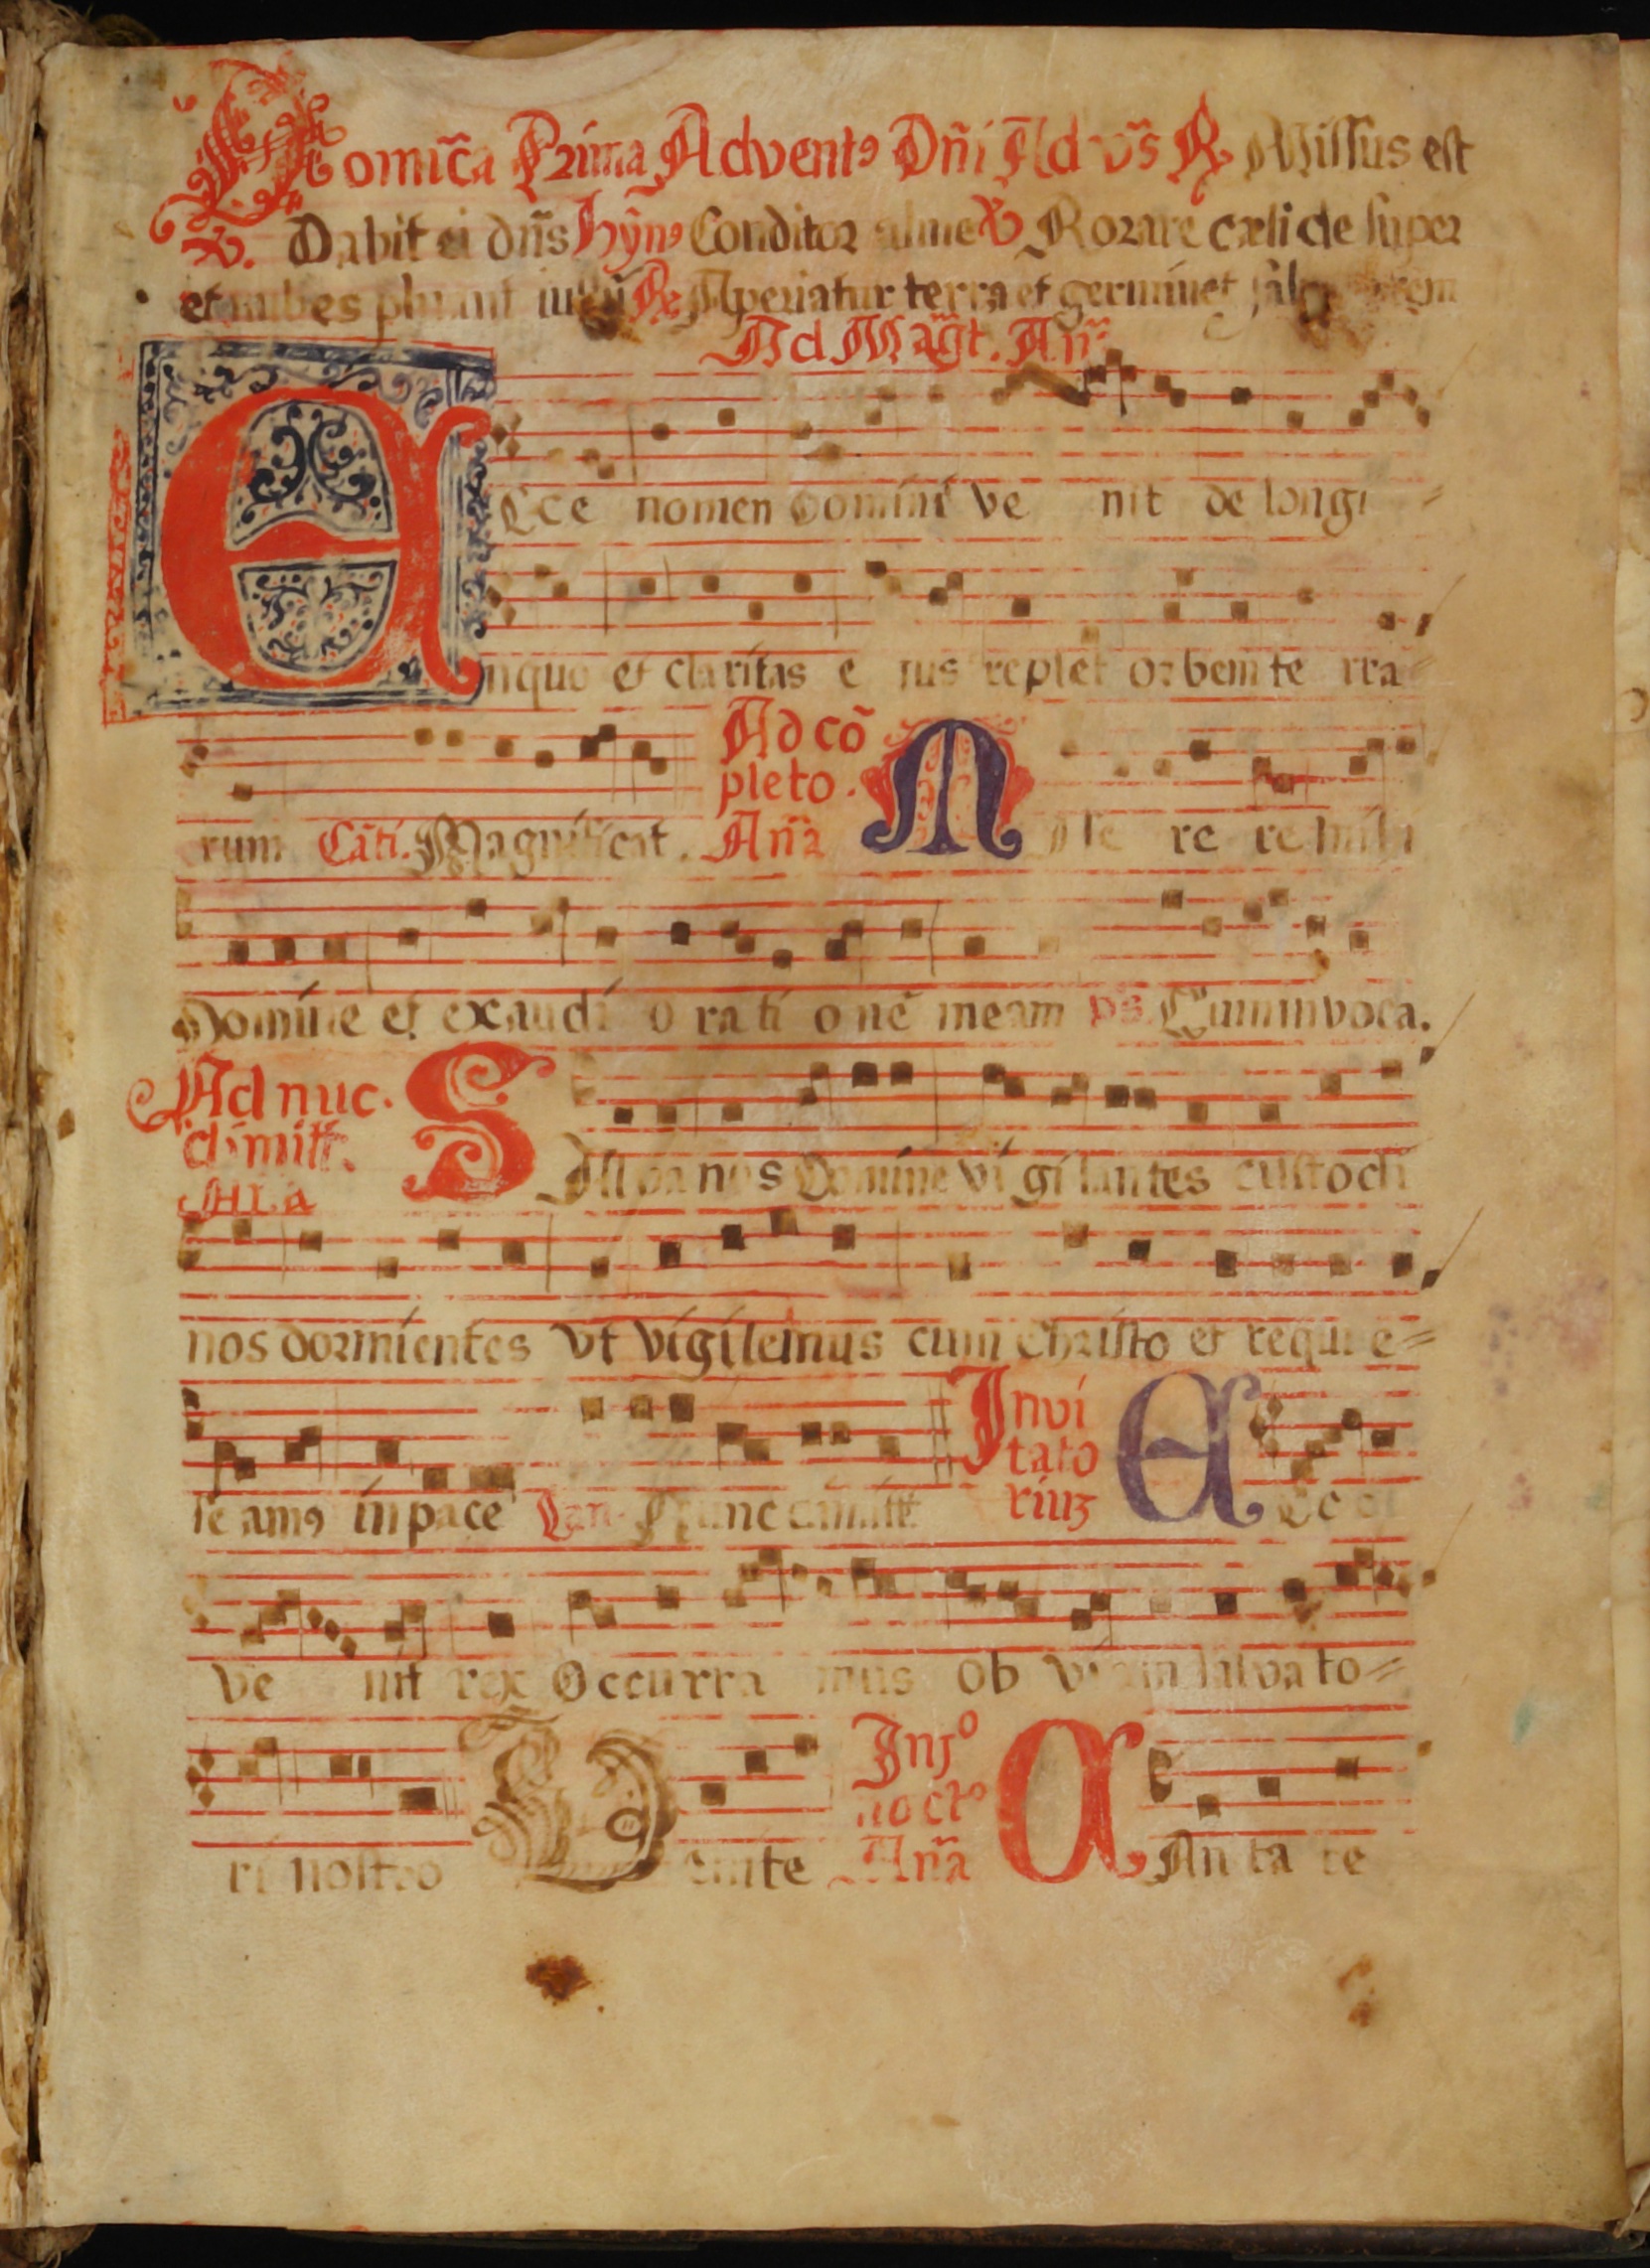 Domīca Prima Adventꝯ Dn̄i Ad vr̄s ℟ Missus est
℣. Dabit ei dn̄s Hỹnꝯ Conditor alme ℣ Rorate cæli de super
et nubes pluant iustū ℟ Aperiatur terra et germinet salvatorem
Ad Magt. An̄
Ecce nomen Domini ve nit de longi =
nquo et claritas e ius replet orbem te rra =
rum Cāti. Magnificat.
Ad cō
pleto.
An̄a
Mise re re mihi
Domine et exaudi o ra ti o nē meam ps. Cum invoca.
Ad nuc.
dimitt.
An̄a
Salva nos Domine vi gi lantes custodi
nos dormientes vt vigilemus cum Christo et requi e =
se amꝯ in pace Can. Nunc dimitt
Invi
tato
riuʒ
Ecce
ve nit rex Occurra mus ob viam salvato =
ri nostro Venite
In jº
noctº
An̄a
CAn ta te